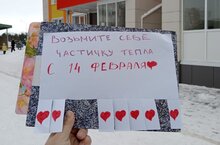 Возьмите себе
частичку тепла
с 14 февраля